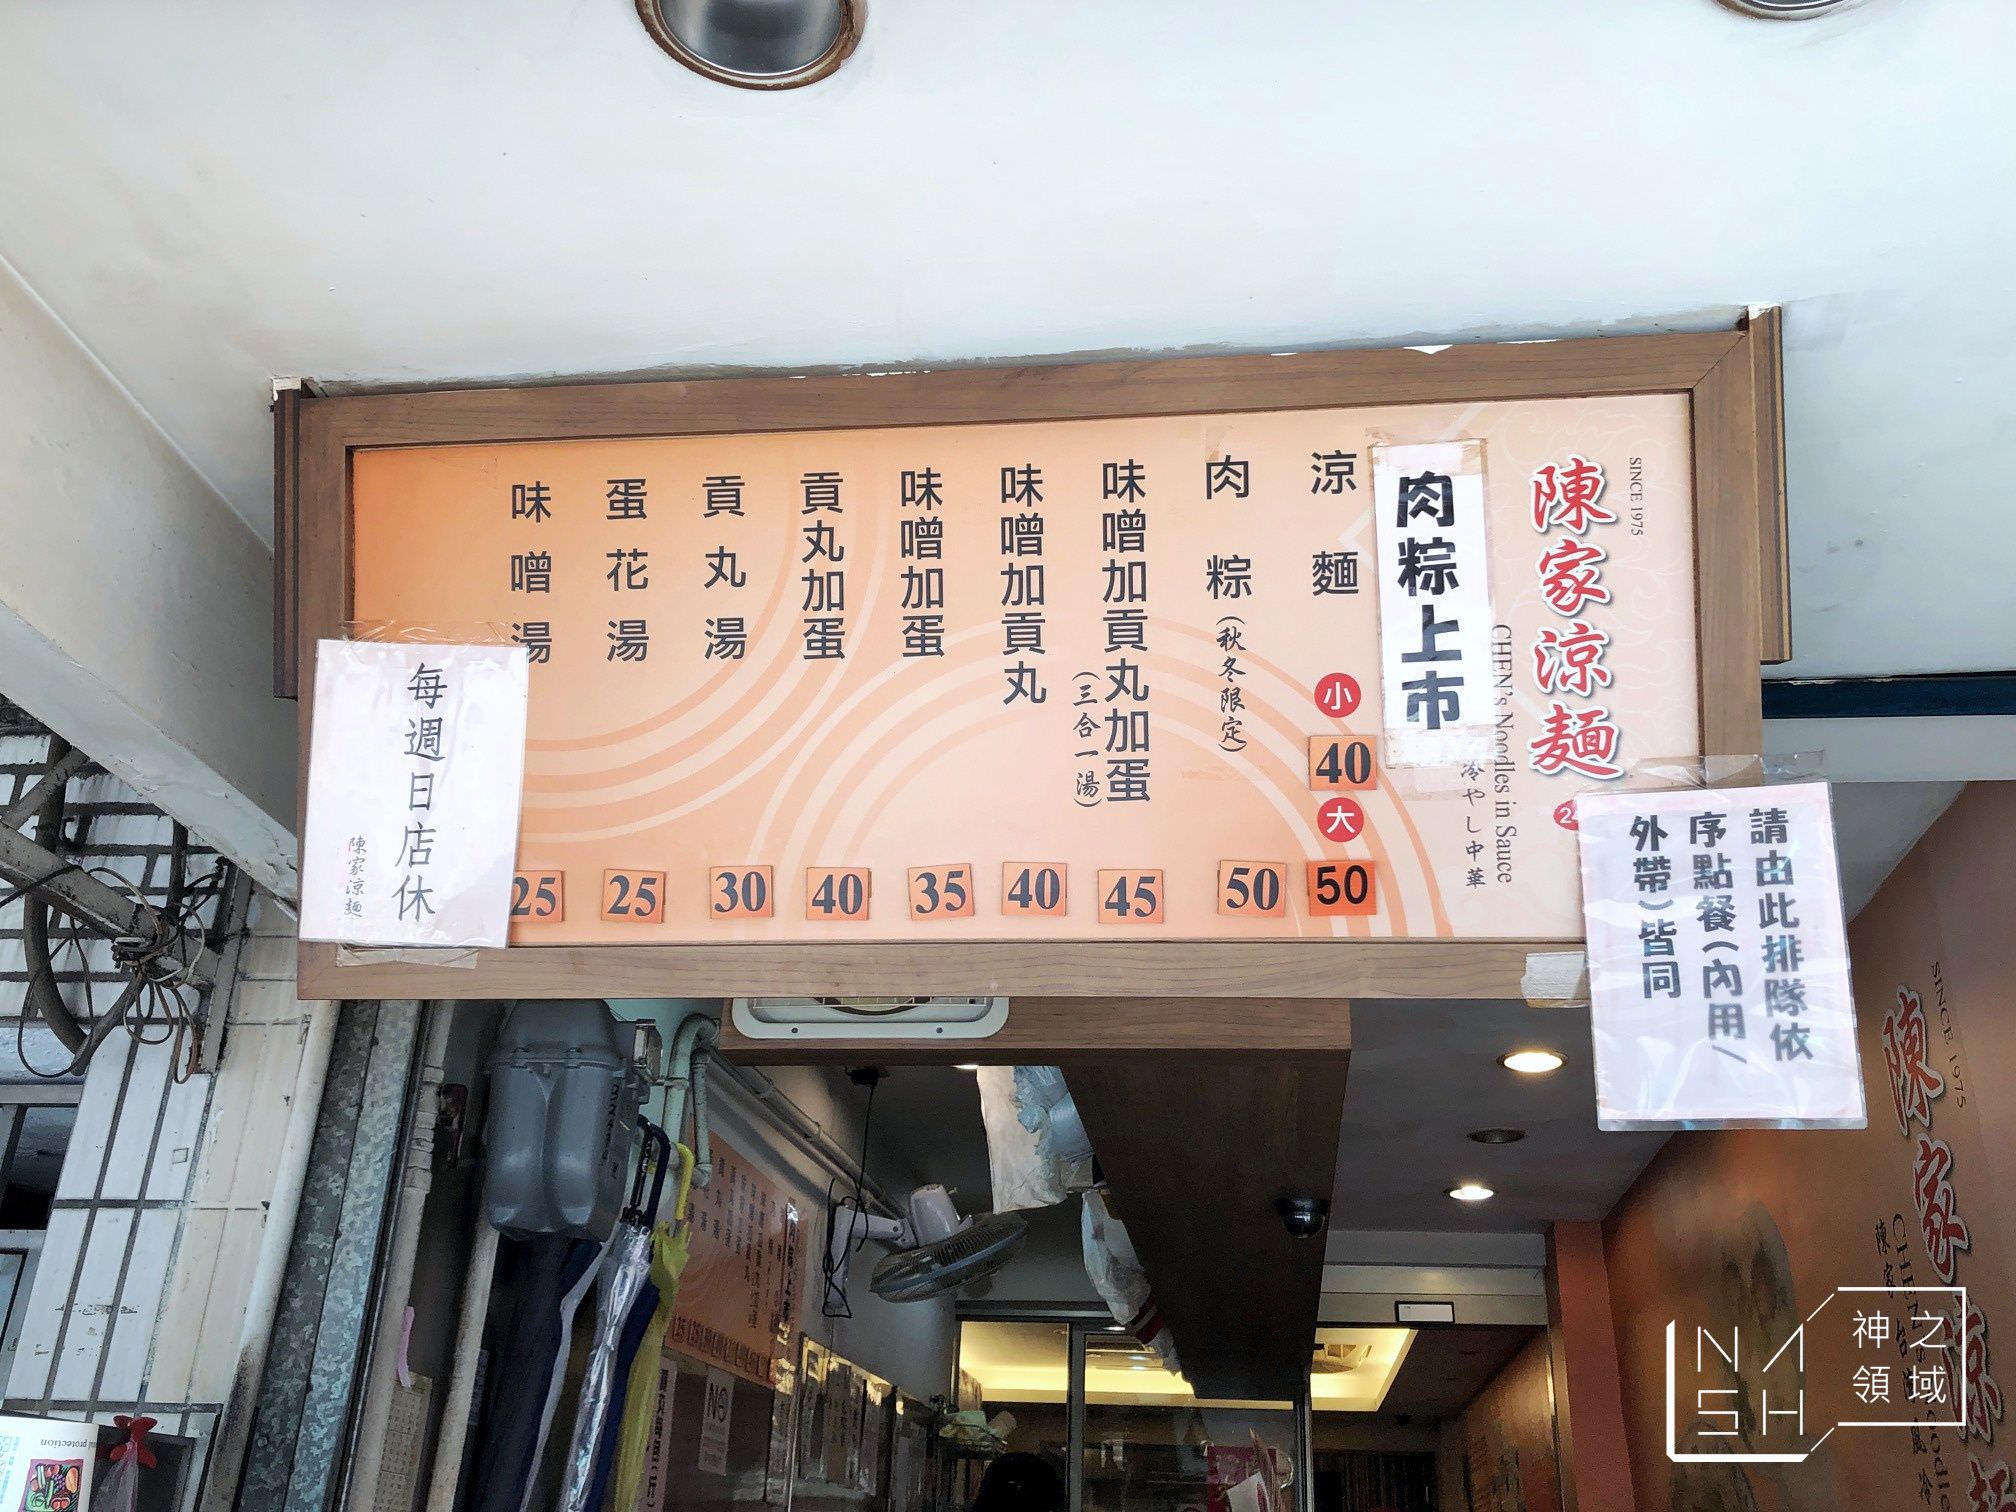 SINCE 1975
陳家涼麵
CHEN's Noodles in Sauce
冷やし中華
肉粽上市
涼麵 小 40 大 50
肉粽(秋冬限定) 50
味噌加貢丸加蛋 45
(三合一湯)
味噌加貢丸 40
味噌加蛋 35
貢丸加蛋 40
貢丸湯 30
蛋花湯 25
味噌湯 25
每週日店休
陳家涼麵
請由此排隊依
序點餐(內用/
外帶)皆同
SINCE 1975
陳家涼
NASH
神之
領域